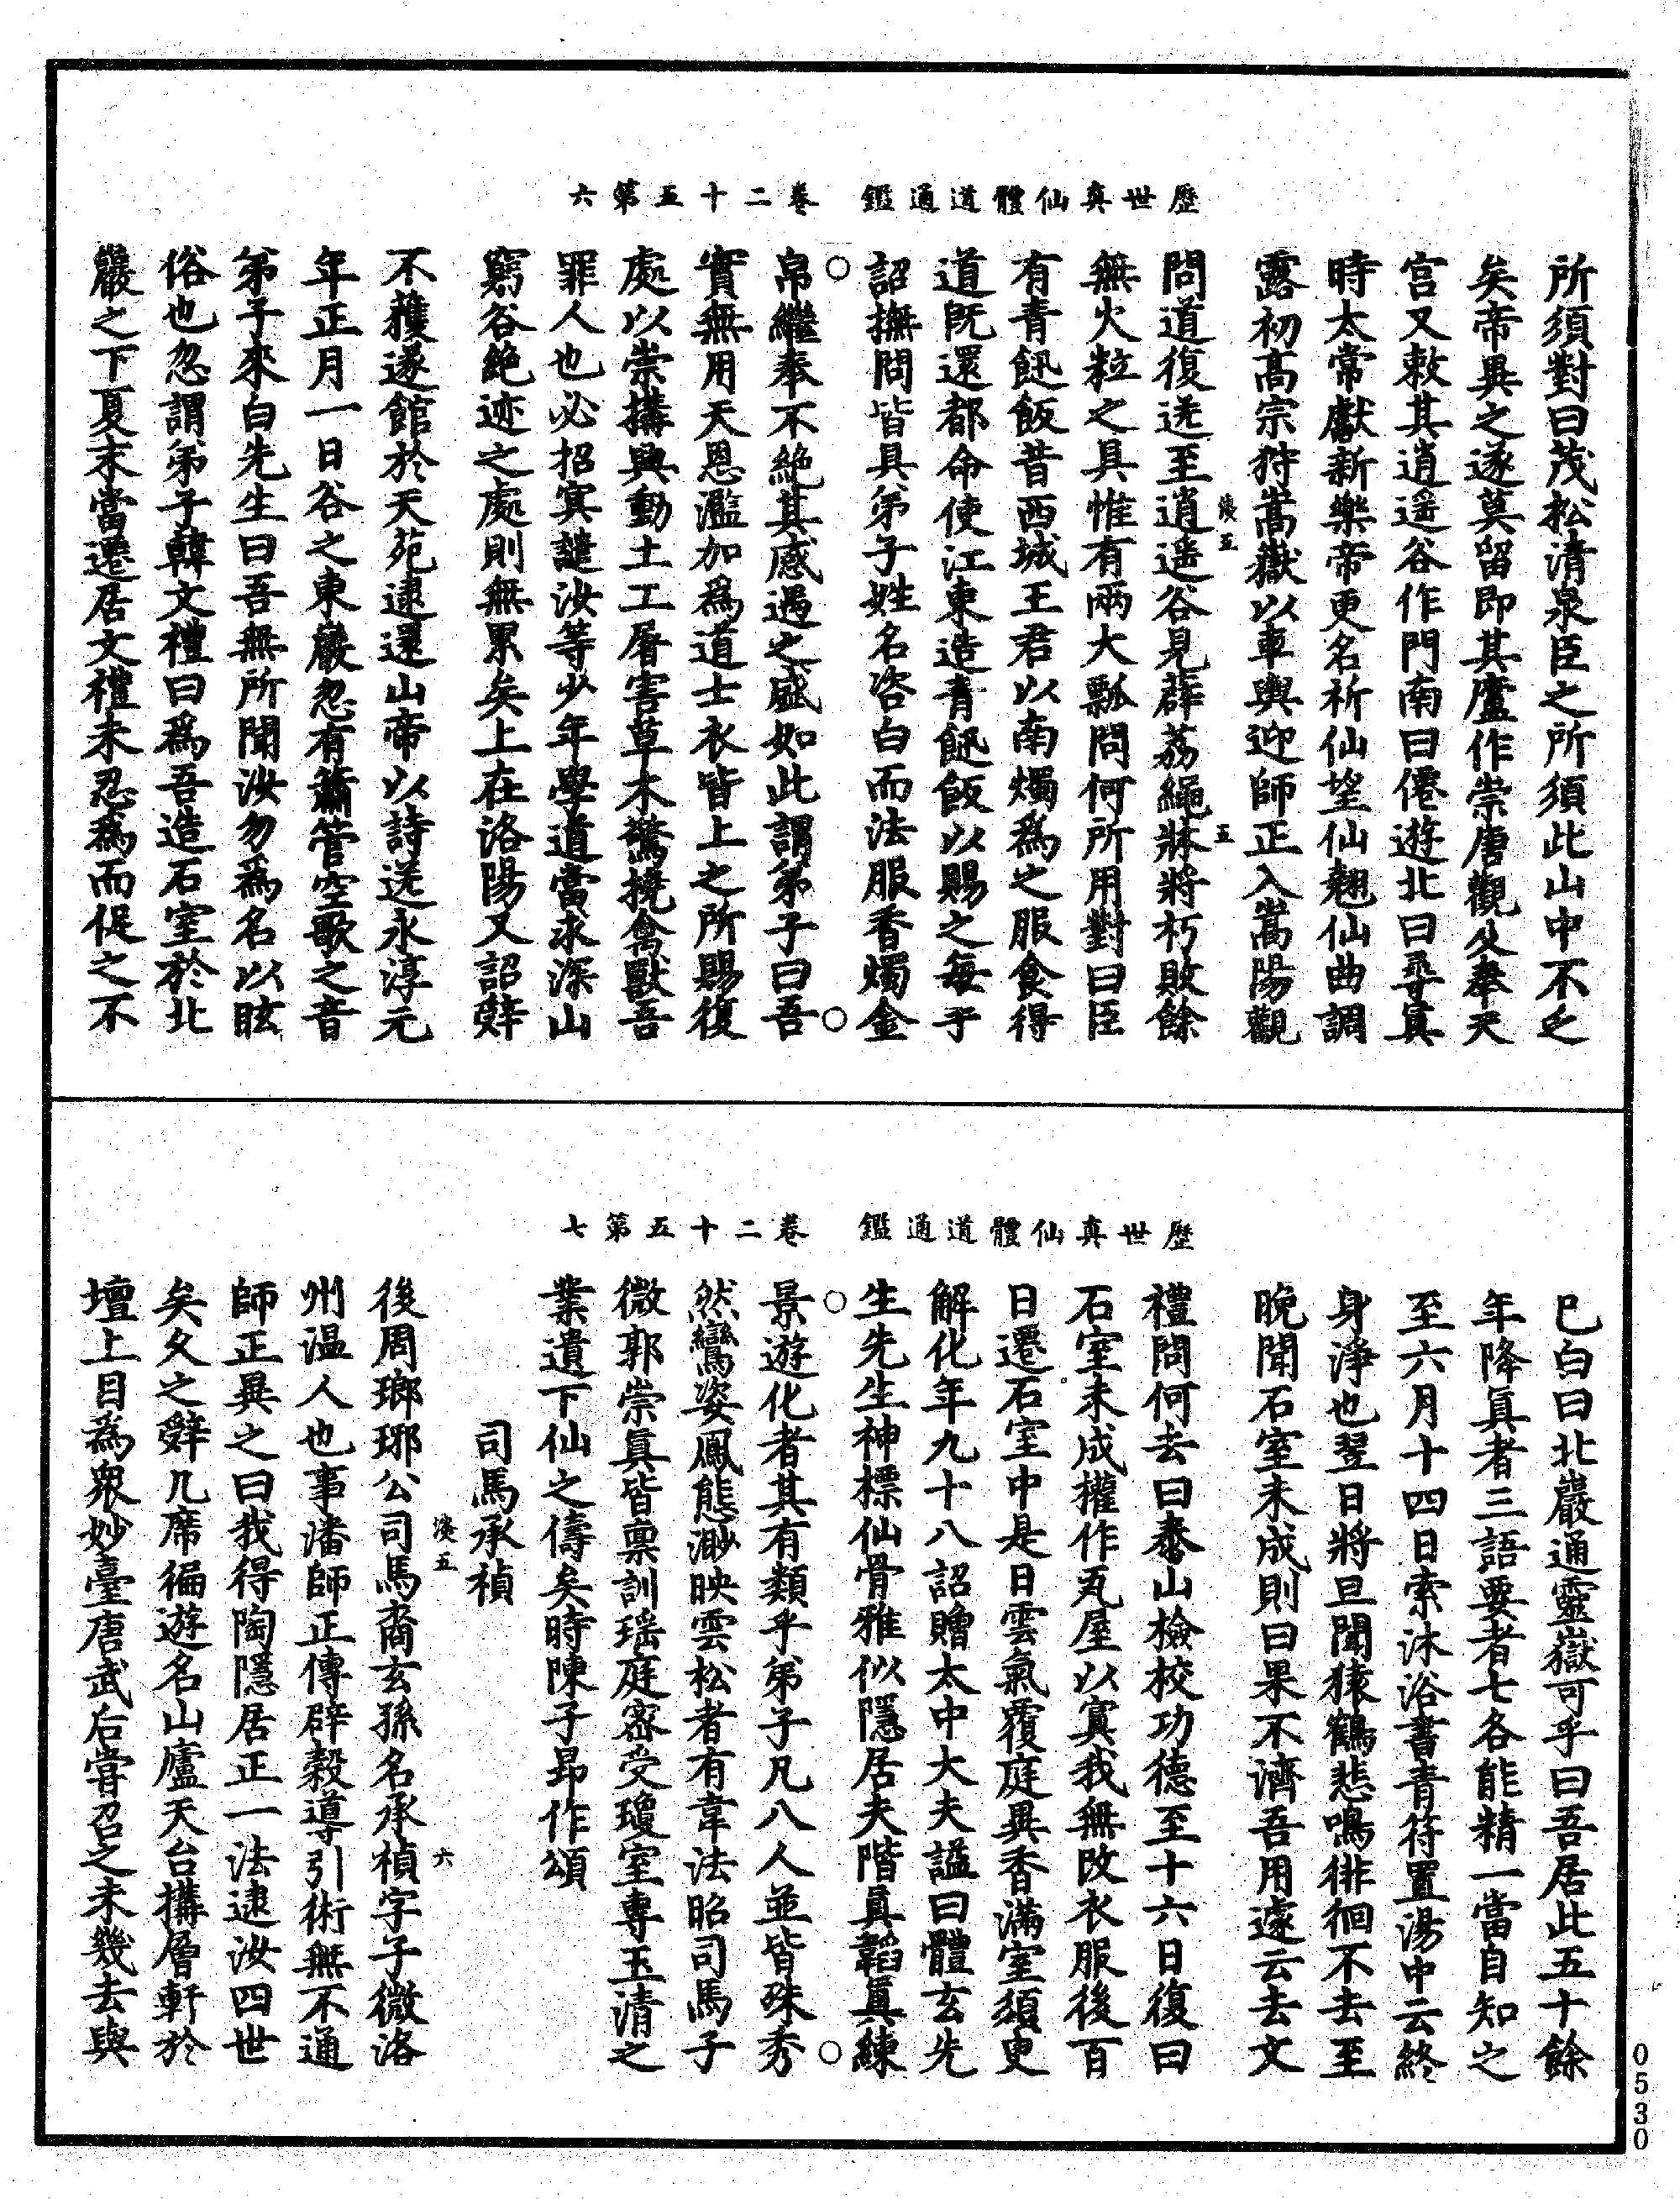 歷世真仙體道通鑑　卷二十五第六
所須對曰茂松清泉臣之所須此山中不乏
矣帝異之遂莫留即其廬作崇唐觀久奉天
宫又敕其逍遥谷作門南曰僊遊北曰尋真
時太常獻新樂帝更名祈仙望仙翹仙曲調
露初高宗狩嵩嶽以車輿迎師正入嵩陽觀
淡五　五
問道復送至逍遥谷見薜荔繩牀將朽敗餘
無火粒之具惟有兩大瓢問何所用對曰臣
有青飿飯昔西城王君以南燭為之服食得
道既還都命使江東造青飿飯以賜之每手
詔撫問皆具弟子姓名咨白而法服香燭金
帛繼奉不絶其感遇之盛如此謂弟子曰吾
實無用天恩濫加為道士衣皆上之所賜復
處以崇搆興動土工屠害草木驚撓禽獸吾
罪人也必招冥譴汝等少年學道當求深山
窮谷絶迹之處則無累矣上在洛陽又詔辭
不獲遂館於天苑逮還山帝以詩送永淳元
年正月一日谷之東巖忽有簫管空歌之音
弟子來白先生曰吾無所聞汝勿為名以眩
俗也忽謂弟子韓文禮曰為吾造石室於北
巖之下夏末當遷居文禮未忍為而促之不
歷世真仙體道通鑑　卷二十五第七
巳白曰北巖通靈嶽可乎曰吾居此五十餘
年降眞者三語要者七各能精一當自知之
至六月十四日索沐浴書青符置湯中云終
身淨也翌日將旦聞猿鶴悲鳴徘徊不去至
晚聞石室未成則曰果不濟吾用遽云去文
禮問何去曰泰山檢校功德至十六日復曰
石室未成權作瓦屋以窴我無改衣服後百
日遷石室中是日雲氣覆庭異香滿室須更
解化年九十八詔贈太中大夫謚曰體玄先
生先生神標仙骨雅似隱居夫階眞韜眞練
景遊化者其有類乎弟子凡八人並皆殊秀
然鸞姿鳳態渺映雲松者有韋法昭司馬子
微郭崇眞皆稟訓瑶庭密受瓊室專玉清之
業遺下仙之儔矣時陳子昂作頌
司馬承禎
淡五　六
後周瑯琊公司馬裔玄孫名承禎字子微洛
州温人也事潘師正傳辟穀導引術無不通
師正異之曰我得陶隱居正一法逮汝四世
矣久之辭几席徧遊名山廬天台搆層軒於
壇上目為衆妙臺唐武后嘗召之未幾去與
0530